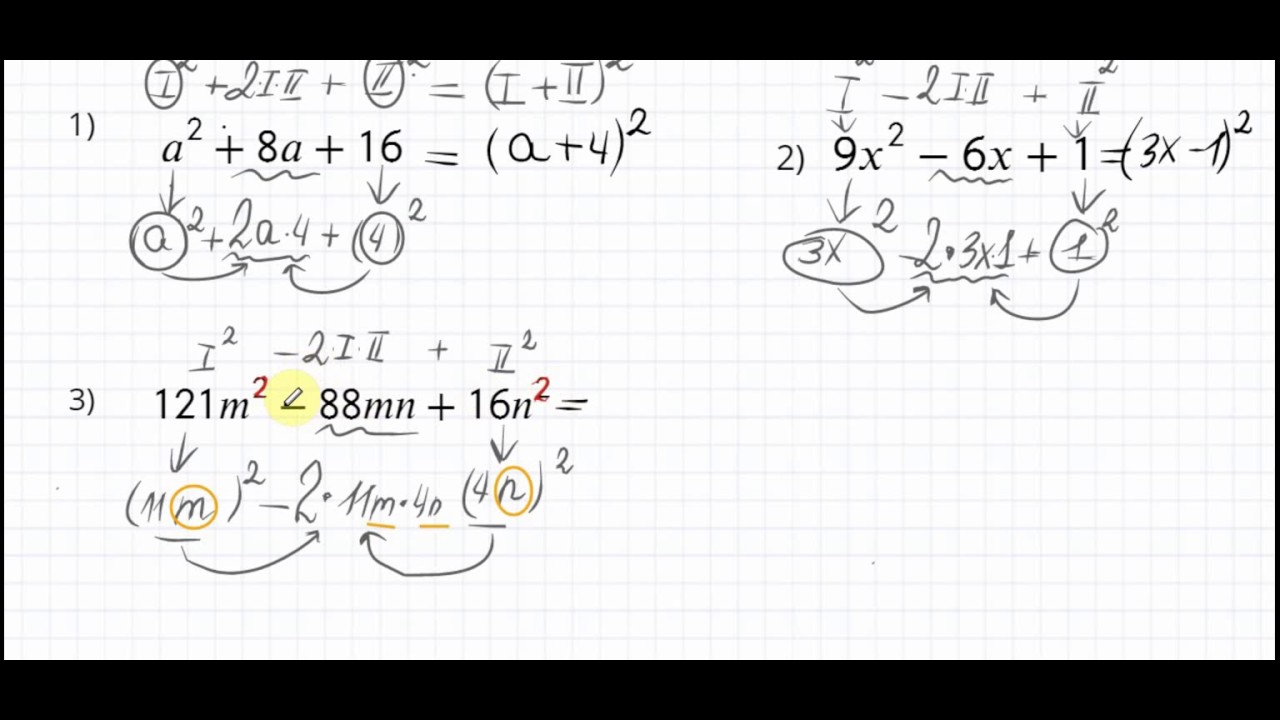 I² + 2I·II + II² = (I + II)²
1) a² + 8a + 16 = (a+4)²
a² + 2a·4 + (4)²
I² − 2I·II + II²
2) 9x² − 6x + 1 = (3x −1)²
3x² − 2·3x·1 + 1²
I² − 2·I·II + II²
3) 121m² − 88mn + 16n² =
(11m)² − 2·11m·4n (4n)²